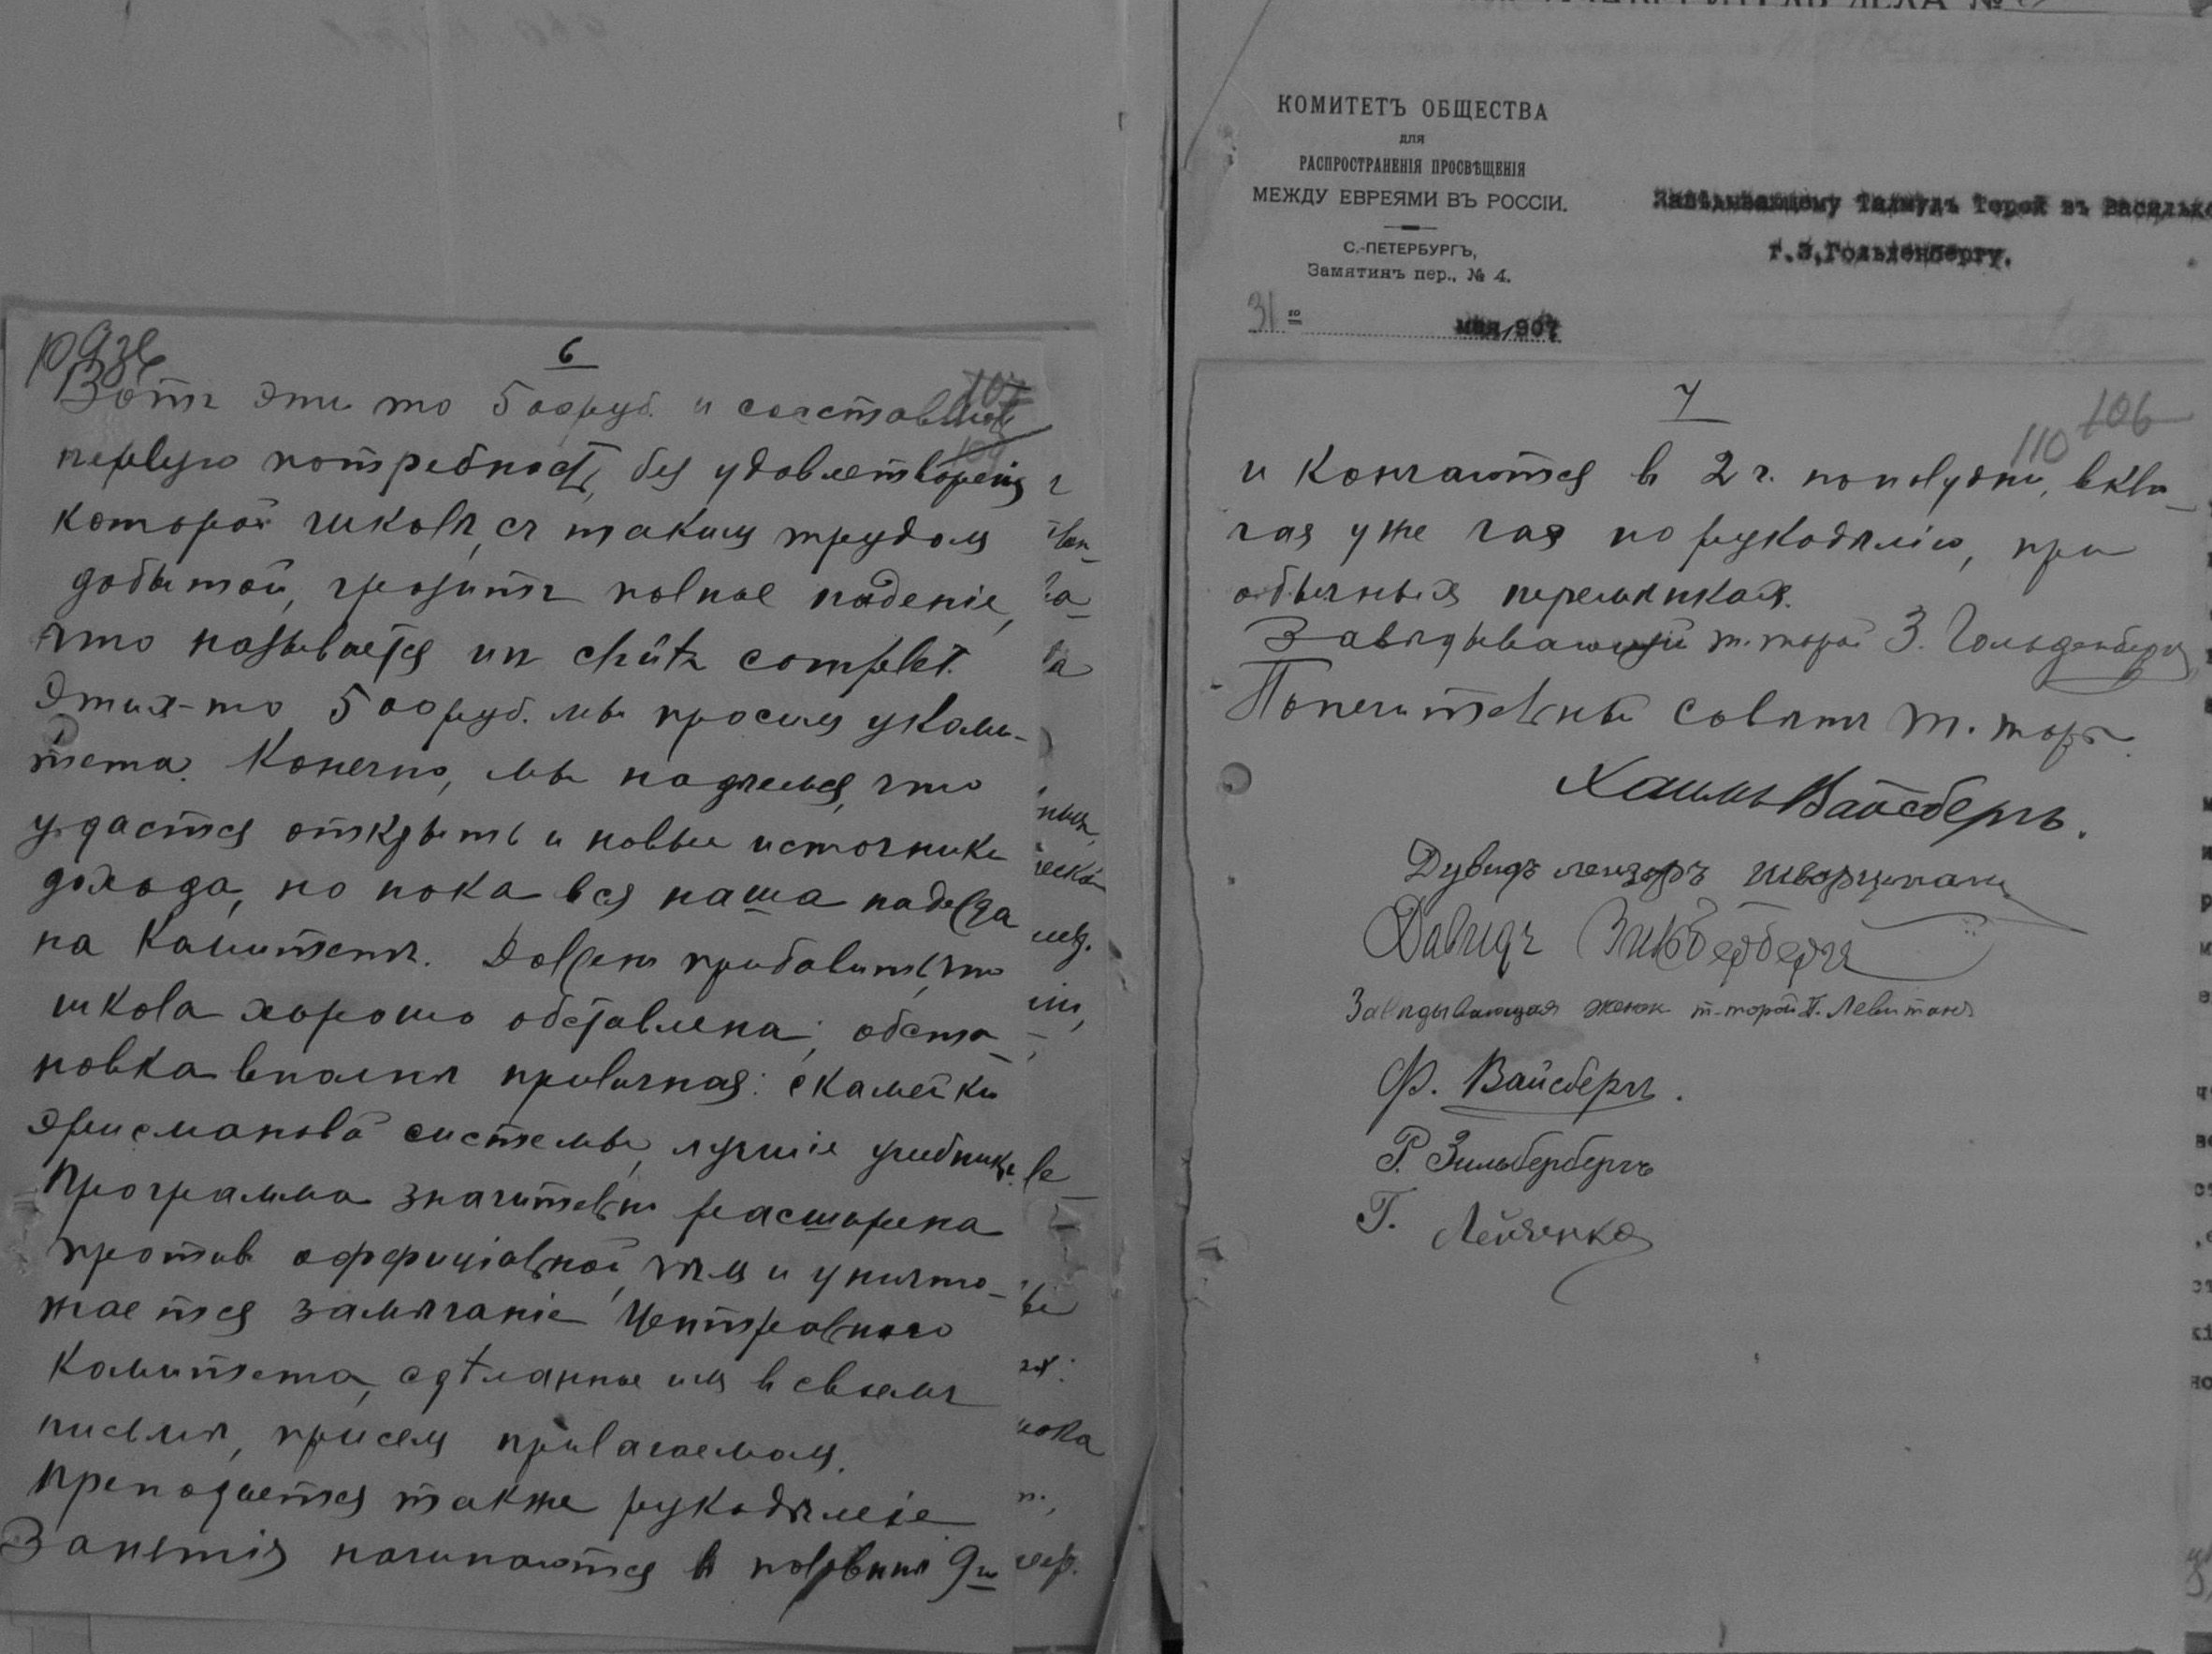 6
Вотъ эти то 500 руб. и составляютъ
первую потребность, безъ удовлетворенія
которой школѣ, съ такимъ трудомъ
добытой, грозитъ полное паденіе,
что называется un chûte complet.
Этихъ-то 500 руб. мы просимъ у Коми-
тета. Конечно, мы надѣемся, что
удастся открыть и новые источники
дохода, но пока вся наша надежда
на Комитетъ. Должен прибавить, что
школа хорошо обставлена; обста-
новка вполнѣ приличная: скамейки
Эрисмановой системы, лучшіе учебники.
Программа значительно расширена
против оффиціальной, чѣмъ и уничто-
жается замѣчаніе Центрального
Комитета, сдѣланное им в своемъ
письмѣ, при семъ прилагаемомъ.
Преподается также рукодѣліе.
Занятія начинаются в половинѣ 9-го
КОМИТЕТЪ ОБЩЕСТВА
для
РАСПРОСТРАНЕНІЯ ПРОСВѢЩЕНІЯ
МЕЖДУ ЕВРЕЯМИ ВЪ РОССІИ.
С.-ПЕТЕРБУРГЪ,
Замятинъ пер., № 4.
31 го мая 1907
Завѣдывающему Талмудъ Торой въ Васильк
г.З,Гольденбергу.
7
106
110
и кончаются в 2 ч. пополудни, вклю-
чая уже час по рукодѣлію, при
обычных перемѣнках.
Завѣдывающий т.-торой З. Гольденбергъ
Попечительный совѣтъ т.-торы.
Хаимъ Вайсбергъ.
Дувидъ Лейзоръ Шварцманъ
Давидъ Зильбербергъ
Завѣдывающая женск. т.-торой П. Левитанъ
Ф. Вайсбергъ.
Р. Зильберберг
Г.